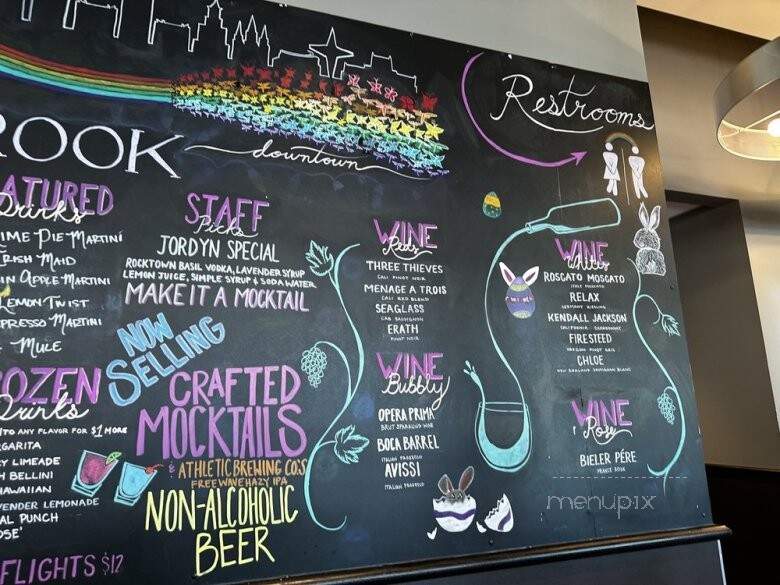 ROOK
downtown
Restrooms
ATURED
Drinks
IME PIE MARTINI
IRISH MAID
IN APPLE MARTINI
LEMON TWIST
PRESSO MARTINI
MULE
OZEN
Drinks
TO ANY FLAVOR FOR $1 MORE
RGARITA
Y LIMEADE
H BELLINI
HAWAIIAN
VENDER LEMONADE
AL PUNCH
OSE'
FLIGHTS $12
STAFF
Picks
JORDYN SPECIAL
ROCKTOWN BASIL VODKA, LAVENDER SYRUP
LEMON JUICE, SIMPLE SYRUP & SODA WATER
MAKE IT A MOCKTAIL
NOW
SELLING
CRAFTED
MOCKTAILS
& ATHLETIC BREWING CO'S
FREE WAVE HAZY IPA
NON-ALCOHOLIC
BEER
WINE
Reds
THREE THIEVES
CALI PINOT NOIR
MENAGE A TROIS
CALI RED BLEND
SEAGLASS
CAB SAUVIGNON
ERATH
PINOT NOIR
WINE
Bubbly
OPERA PRIMA
BRUT SPARKLING WINE
BOCA BARREL
ITALIAN PROSECCO
AVISSI
ITALIAN PROSECCO
WINE
Whites
ROSCATO MOSCATO
ITALY MOSCATO
RELAX
GERMANY RIESLING
KENDALL JACKSON
CALIFORNIA CHARDONNAY
FIRESTEED
OREGON PINOT GRIS
CHLOE
NEW ZEALAND SAUVIGNON BLANC
WINE
Rosé
BIELER PÉRE
FRANCE ROSE
menupix